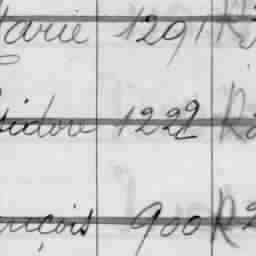 arie 1291 R
sidore 1222 R
ançois 900 R2